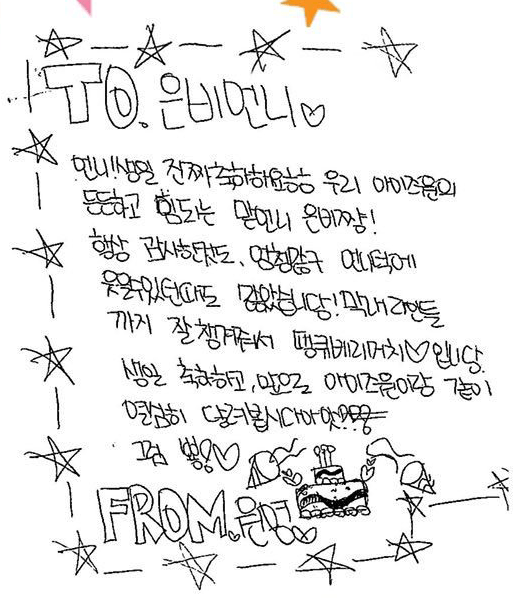 TO. 은비언니♡
언니! 생일 진짜 축하해요ㅎㅎ 우리 아이즈원의
든든하고 힘도는 맏언니 은비쨩!
항상 감사한맛도, 엄청많구 언니덕에
웃을수있던때도 많았습니당! 막내라인들
까지 잘 챙겨줘서 땡큐베리머치♡입니당.
생일 축하하고, 앞으로 아이즈원이랑 같이
열심히 달려봅시다아앗
그럼 뿅!♡
FROM.